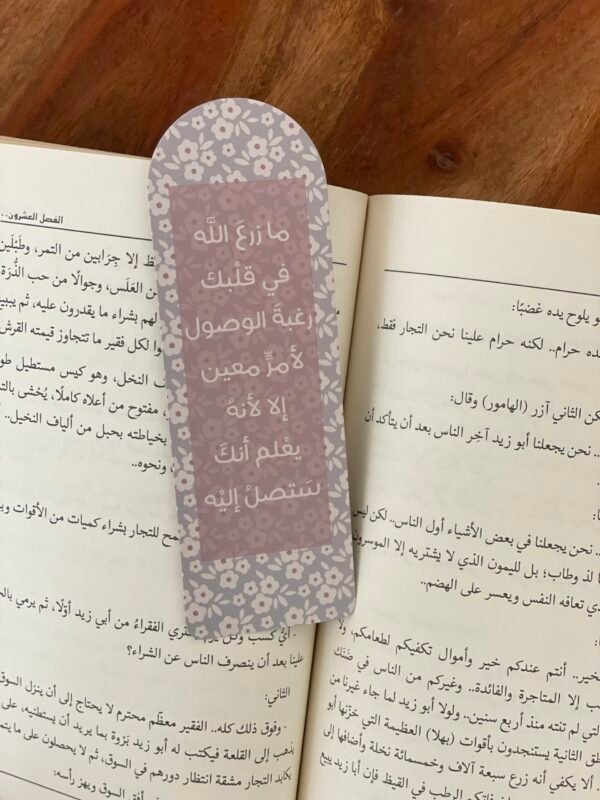 ما زرعَ اللَّه
في قلْبك
رغبةَ الوصول
لأمرٍّ معين
إلا لأنهُ
يعْلم أنكَ
سَتصلُ إليْه
الفصل العشرون..
إلا جِرَابين من التمر، وطَبَلَين
من العَلَس، وجوالًا من حب الذُّرَة
لهم بشراء ما يقدرون عليه، ثم يبيـ
لكل فقير ما تتجاوز قيمته القرش
النخل، وهو كيس مستطيل طو
مفتوح من أعلاه كاملًا، يُخشى بالتـ
بخياطته بحبل من ألياف النخيل..
ونحوه..
مح للتجار بشراء كميات من الأقوات وبـ
الفقراءُ من أبي زيد أوّلًا، ثم يرمي بالحـ
علينا بعد أن ينصرف الناس عن الشراء؟
الثاني:
- وفوق ذلك كله.. الفقير معظّم محترم لا يحتاج إلى أن ينزل السوق
يذهب إلى القلعة فيكتب له أبو زيد بَرْوة بما يريد أن يستطنيه، على
يكابد التجار مشقة انتظار دورهم في السوق، ثم لا يحصلون على ما يتمـ
أفق السوق ويهز رأسه:
يلوح يده غضبًا:
ده حرام.. لكنه حرام علينا نحن التجار فقط،
كن الثاني آزر (الهامور) وقال:
.. نحن يجعلنا أبو زيد آخِر الناس بعد أن يتأكد أن
.. نحن يجعلنا في بعض الأشياء أول الناس.. لكن ليس
لذ وطاب؛ بل لليمون الذي لا يشتريه إلا الموسرون
ذي تعافه النفس ويعسر على الهضم..
خير.. أنتم عندكم خير وأموال تكفيكم لطعامكم، ولا
إلا المتاجرة والفائدة.. وغيركم من الناس في ضَنَك
التي لم تنته منذ أربع سنين.. ولولا أبو زيد لما جاء غيرنا من
طق الثانية يستنجدون بأقوات (بهلا) العظيمة التي خزّنها أبو
ألا يكفي أنه زرع سبعة آلاف وخمسمائة نخلة وأضافها إلى
الرطب في القيظ فإن أبا زيد يبيع